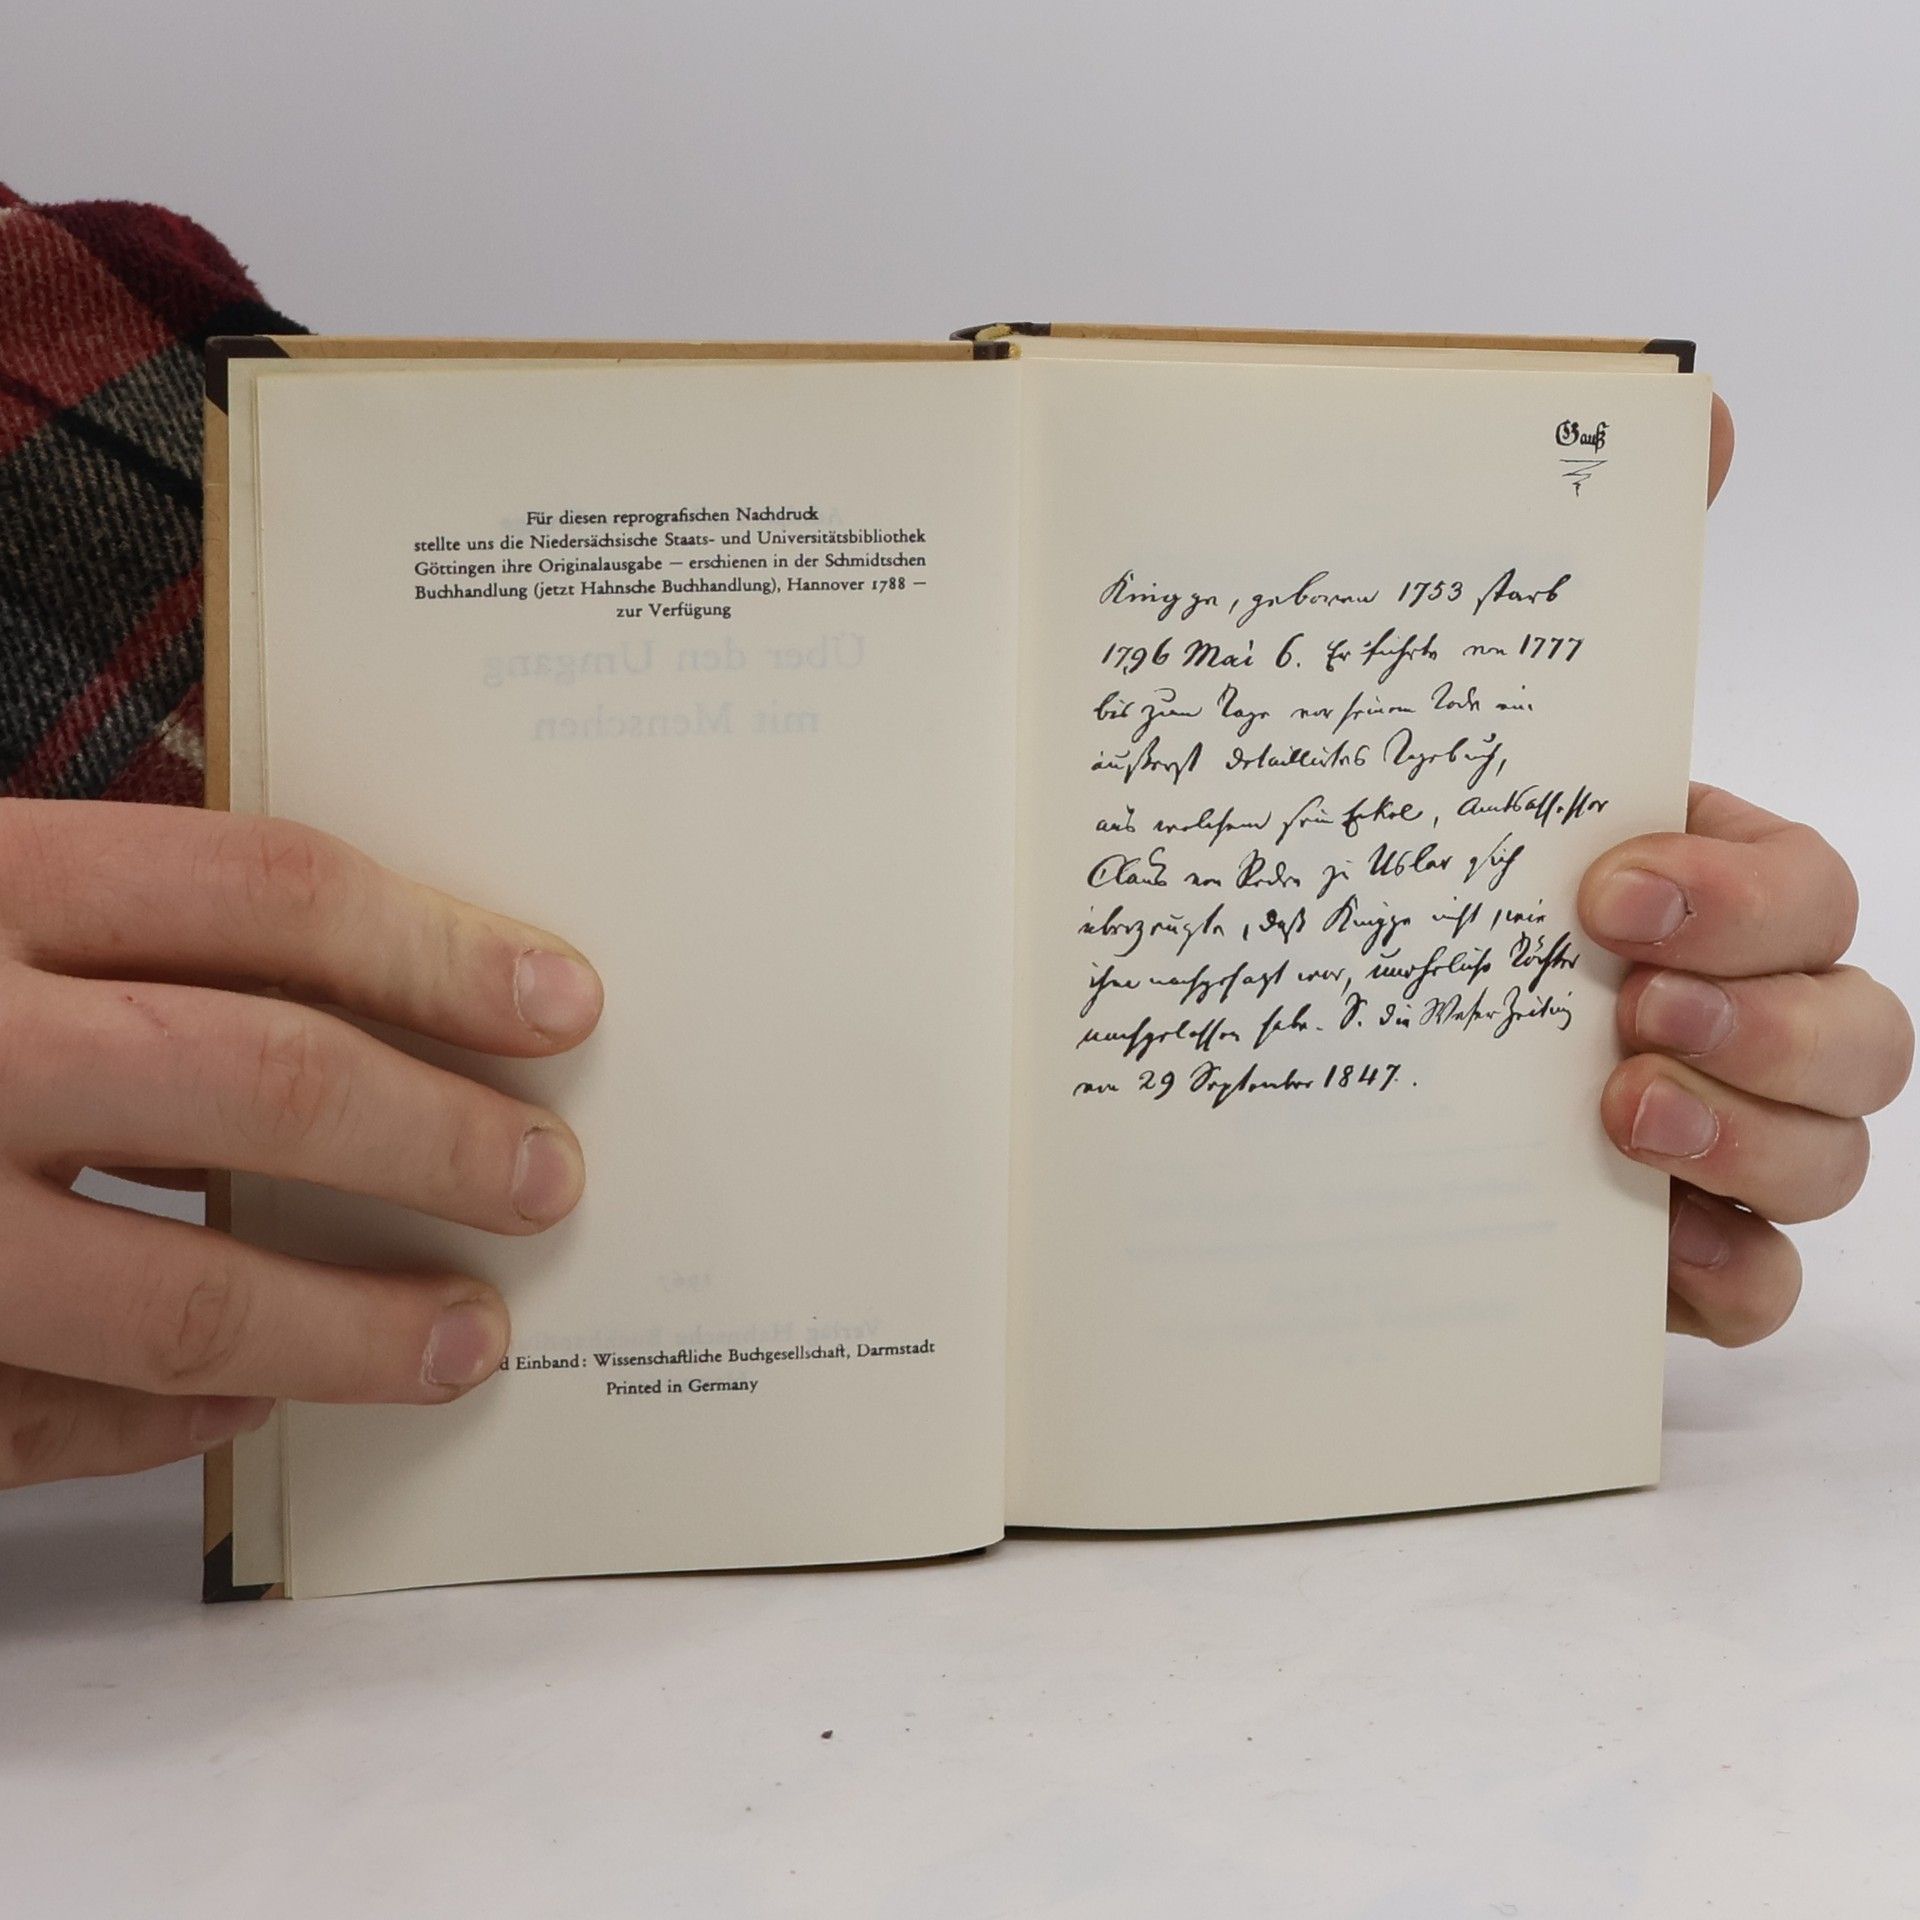 Für diesen reprografischen Nachdruck
stellte uns die Niedersächsische Staats- und Universitätsbibliothek
Göttingen ihre Originalausgabe — erschienen in der Schmidtschen
Buchhandlung (jetzt Hahnsche Buchhandlung), Hannover 1788 —
zur Verfügung
Über den Umgang
mit Menschen
1967
d Einband: Wissenschaftliche Buchgesellschaft, Darmstadt
Printed in Germany
Gauß
Knigge, geboren 1753 starb
1796 Mai 6. Er führte von 1777
bis zum Tage vor seinem Tode ein
äußerst detaillirtes Tagebuch,
aus welchem sein Enkel, Amtsassessor
Claus von Reden zu Uslar sich
überzeugte, daß Knigge nicht, wie
ihm nachgesagt war, unehrliche Töchter
nachgelassen habe. S. die Weser Zeitung
von 29 September 1847.